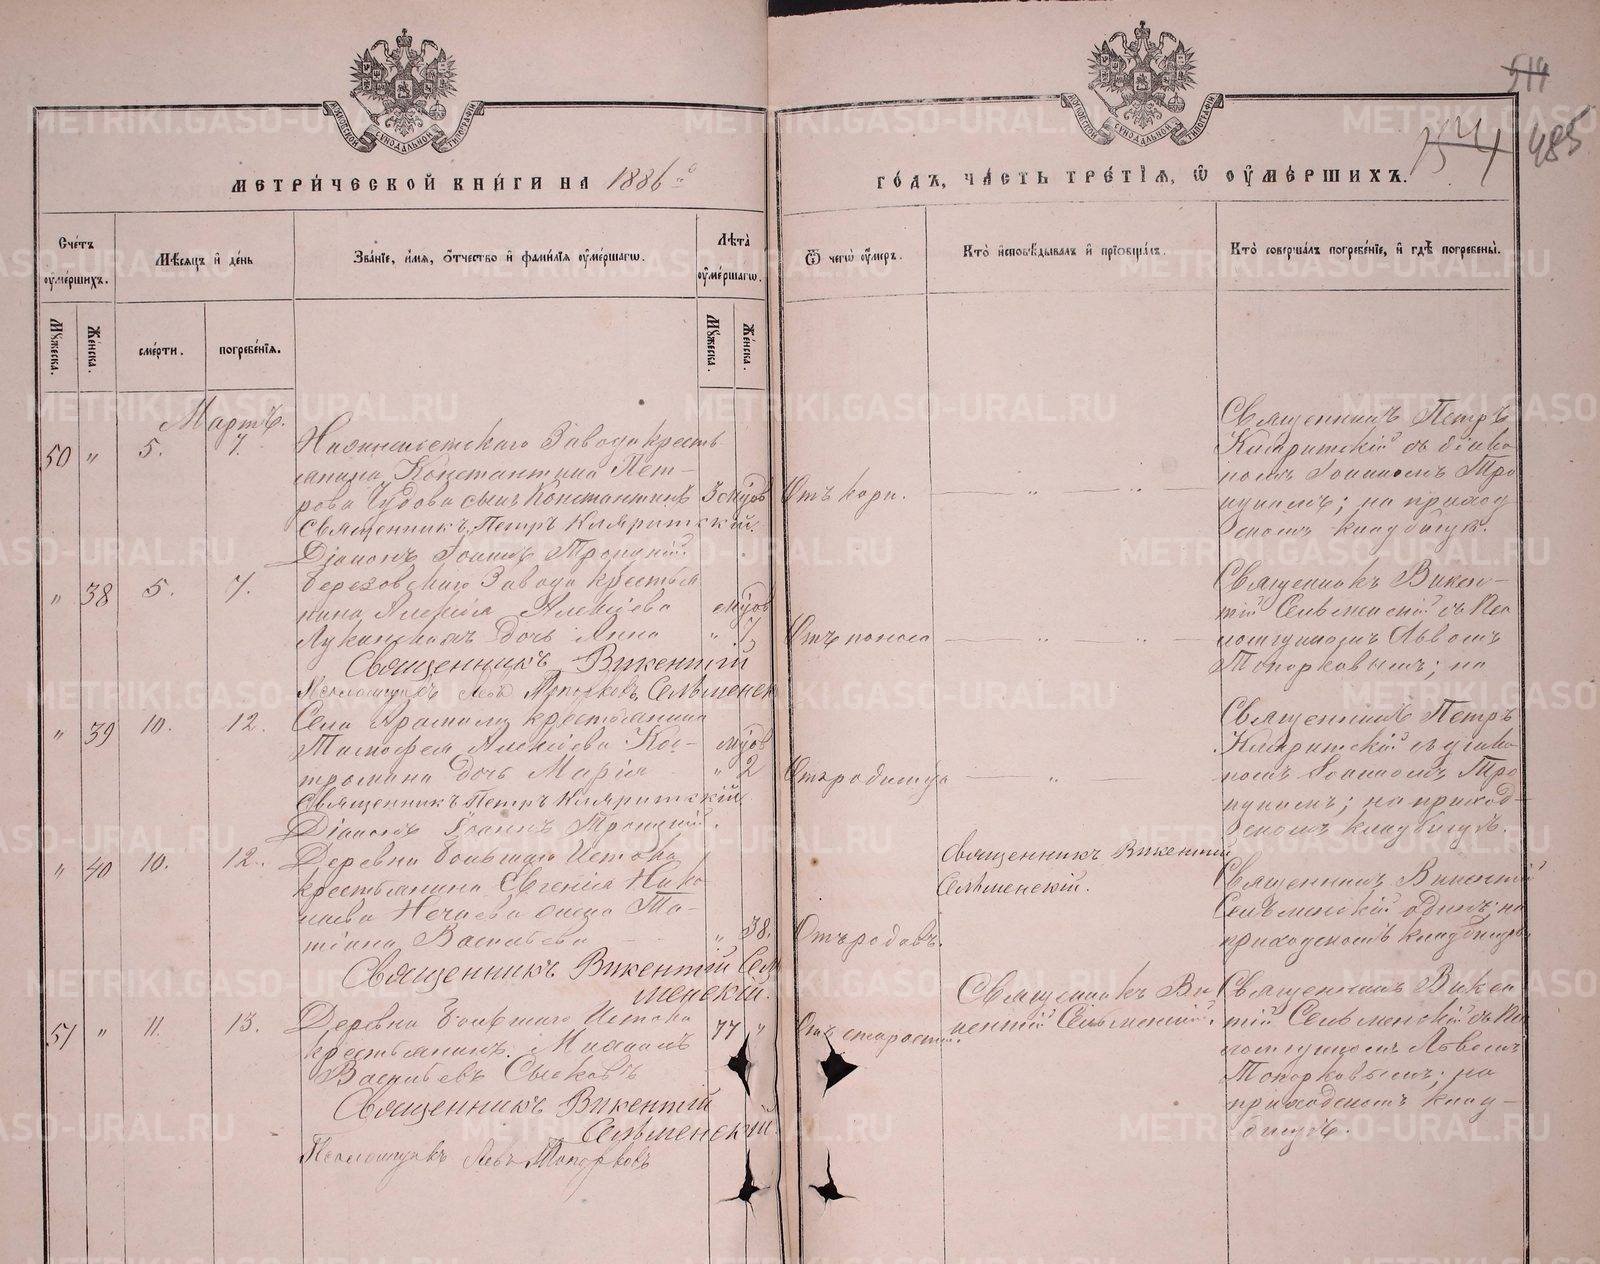 514
754
485
МЕТРИ́ЧЕСКОЙ КНИ́ГИ НА 1886 й
ГО́ДЪ, ЧА́СТЬ ТРЕ́ТІѦ, Ѡ҆ ОУ҆МЕ́РШИХЪ.
Сче́тъ оу҆ме́ршихъ.
Мѣ́сяцъ и҆ де́нь
Зва́нїе, и҆́мѧ, ѻ҆́тчество и҆ фами́лїѧ оу҆ме́ршагѡ.
Лѣ́та оу҆ме́ршагѡ.
Ѿ чегѡ̀ оу҆́мръ.
Кто̀ и҆сповѣ́дывалъ и҆ прїѡбща́лъ.
Кто̀ соверша́лъ погребе́нїе, и҆ гдѣ̀ погребены̀.
Му́жеска.
Же́нска.
сме́рти.
погребе́нїѧ.
Му́жеска.
Же́нска.
Мартъ.
50 " 5. 7.
Завода кресть
янина Константина Пет-
рова Чудова сынъ Константинъ
Священникъ Петръ
Діаконъ Іоаннъ Троицкій
Отъ кори.
Священникъ Петръ
съ діако
номъ Іоанномъ Тро
ицкимъ; на приход
скомъ кладбищѣ.
" 38 5. 7.
Березовскаго Завода крестья
нина Алексія Алексіева
дочь Анна " 7
Священникъ Викентій
Псаломщикъ Левъ Топорковъ Сельменск
Отъ поноса
Священникъ Викен-
тій Сельменскій съ Пса
ломщикомъ Львомъ
Топорковымъ; на
" 39 10. 12.
Села Арамили крестьянина
Тимофея Алексіева Кос-
тромина дочь Марія " 2
Священникъ Петръ
Діаконъ Іоаннъ Троицкій.
Отъ родимца
Священникъ Петръ
съ діако
номъ Іоанномъ Тро
ицкимъ; на приход-
скомъ кладбищѣ.
" 40 10. 12.
Деревни Большаго Истока
крестьянина Евгенія Нико
лаева Нечаева жена Та-
тіана Васильева " 38.
Священникъ Викентій Сел
менскій.
Отъ родовъ.
Священникъ Викентій
Сельменскій.
Священникъ Викентій
Сельменскій одинъ; на
приходскомъ кладбищѣ
51 " 11. 13.
Деревни Большаго Истока
крестьянинъ Михаилъ 77 "
Васильевъ Сысковъ
Священникъ Викентій
Сельменскій.
Псаломщикъ Левъ Топорковъ
Отъ старости.
Священникъ Ви
кентій Сельменскій.
Священникъ Викен
тій Сельменскій съ Пса
ломщикомъ Львомъ
Топорковымъ; на
приходскомъ клад-
бищѣ.